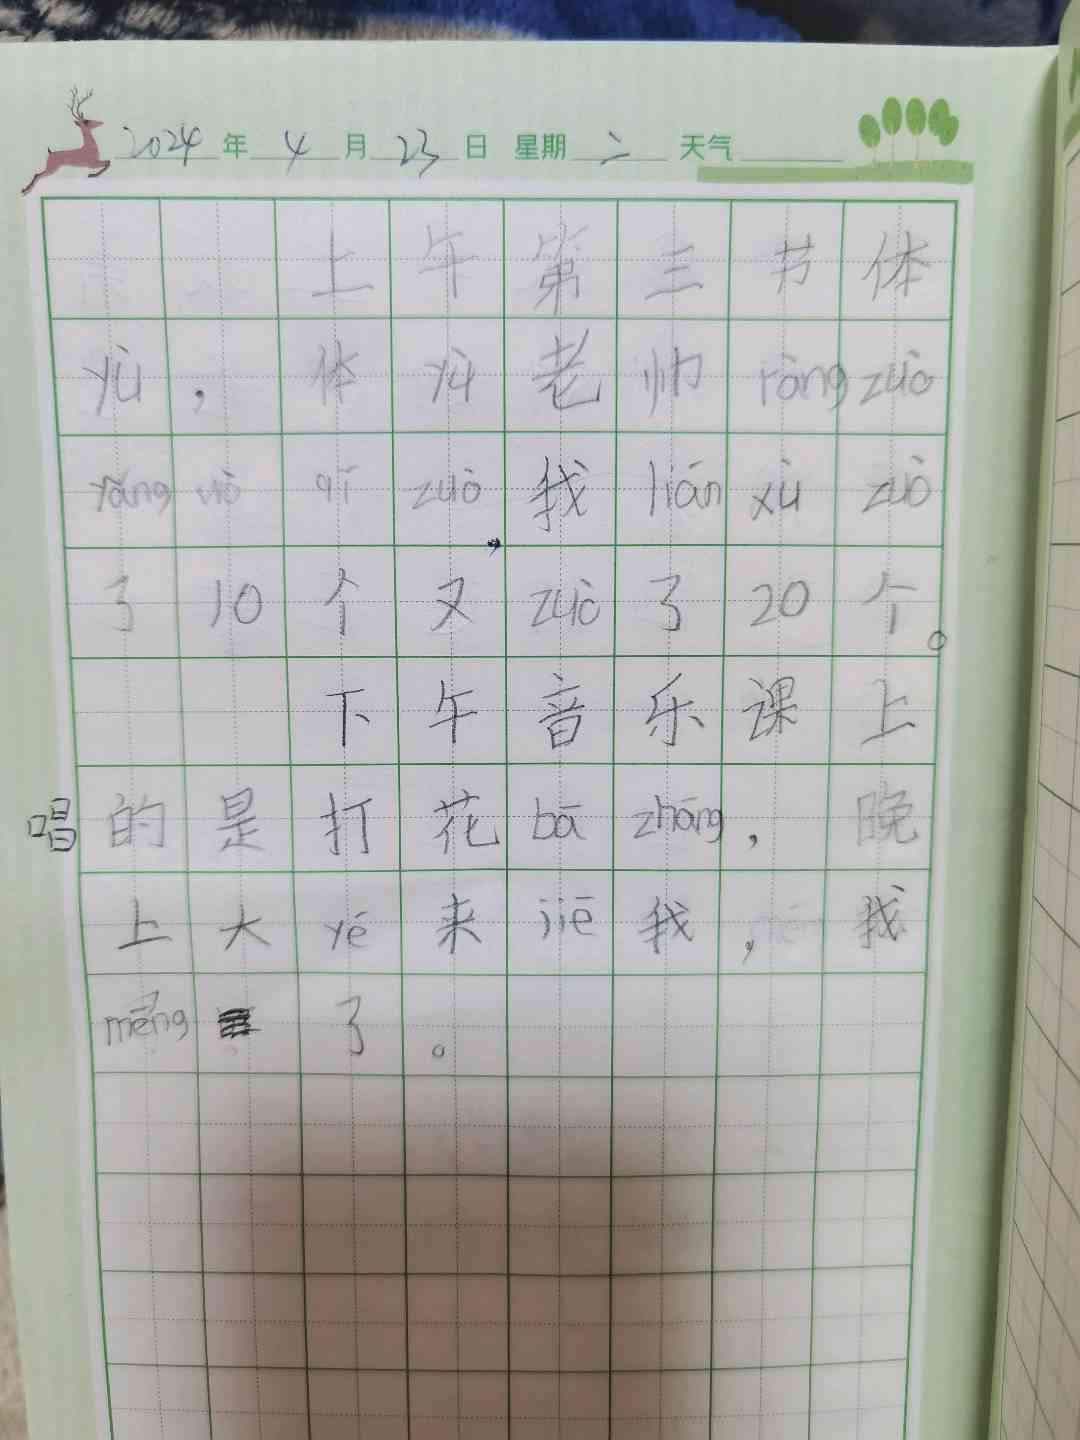 2024年4月23日 星期二 天气
上午第三节体
yù，体yù老帅ràng zuò
yǎng wò qǐ zuò，我lián xù zuò
了10个又zuò了20个。
下午音乐课上
唱的是打花bā zhǎng，晚
上大yé来jiē我，我
mēng了。